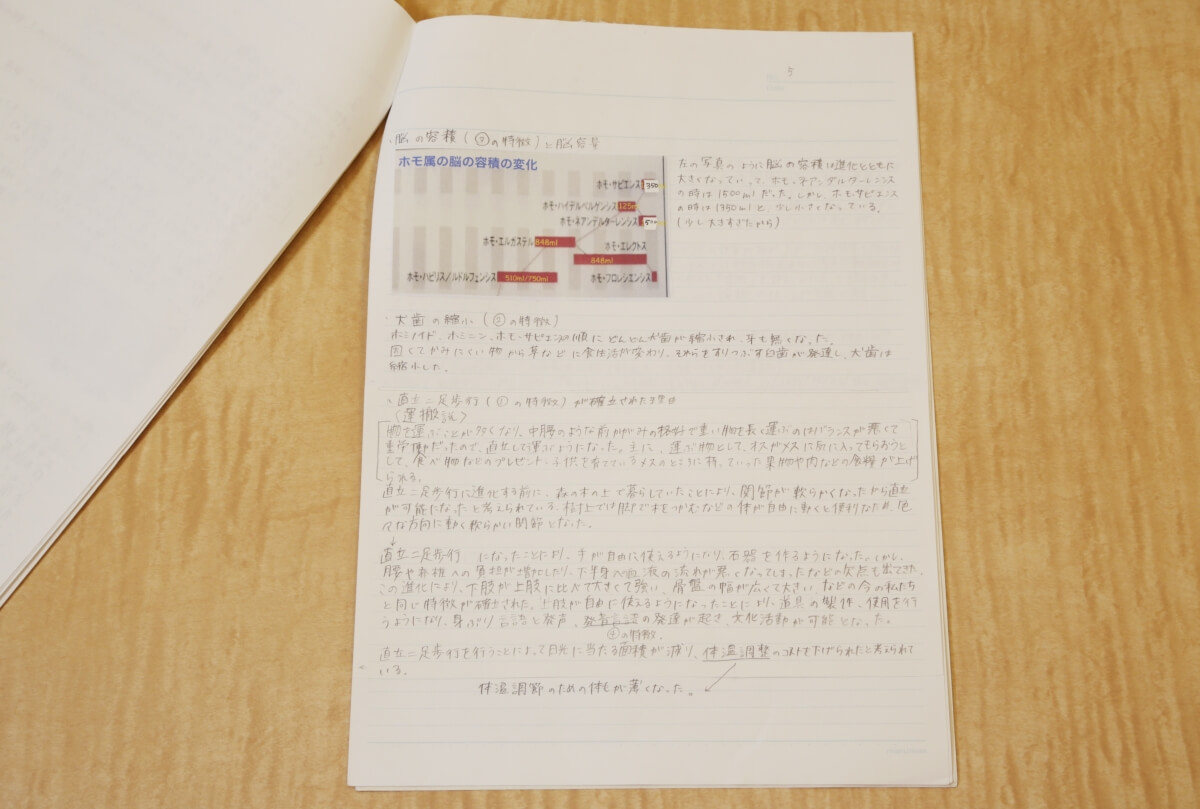 5
・脳の容積(③の特徴)と脳容量
ホモ属の脳の容積の変化
ホモ・サピエンス 350
ホモ・ハイデルベルゲンシス 125
ホモ・ネアンデルターレンシス
ホモ・エルガステル 848ml
ホモ・エレクトス
848ml
ホモ・ハビリス/ルドルフェンシス 510ml/750ml
ホモ・フロレシエンシス
左の写真のように脳の容積は進化とともに
大きくなっていって、ホモ・ネアンデルターレンシス
の時は1500mlだった。しかし、ホモサピエンス
の時は1350mlと少し小さくなっている。
(少し大きすぎたから)
・犬歯の縮小(②の特徴)
ホミノイド、ホミニン、ホモ・サピエンスの順にどんどん犬歯が縮小され、牙も短くなった。
固くてかみにくい物から草などに食生活が変わり、それらをすりつぶす臼歯が発達し、犬歯は
縮小した。
・直立二足歩行(①の特徴)が確立された理由
〈運搬説〉
物を運ぶことが多くなり、中腰のような前かがみの格好で重い物を長く運ぶのはバランスが悪くて
重労働だったので、直立して運ぶようになった。主に、運ぶ物として、オスがメスに気に入ってもらおうと
して、食べ物などのプレゼント・子供を育てているメスのところに持っていった果物や肉などの食糧が上げ
られる。
直立二足歩行に進化する前に、森の木の上で暮らしていたことにより、関節が軟らかくなったから直立
が可能になったと考えられている。樹上では脚で木をつかむなどの体が自由に動くと便利なため、色
々な方向に動く軟らかい関節となった。
↓
直立二足歩行 になったことにより、手が自由に使えるようになり、石器を作るようになった。しかし、
腰や脊椎への負担が増加したり、下半身へ血液の流れが悪くなってしまったなどの欠点も出てきた。
この進化により、下肢が上肢に比べて大きくて強い、骨盤の幅が広くて大きい などの今の私たち
と同じ特徴が確立された。上肢が自由に使えるようになったことにより、道具の製作、使用を行
うようになり、身ぶり言語と発声、発声言語の発達が起き、文化活動が可能となった。
④の特徴。
直立二足歩行を行うことによって日光に当たる面積が減り、体温調整のコストを下げられたと考えられて
いる。
体温調節のための体毛が薄くなった。